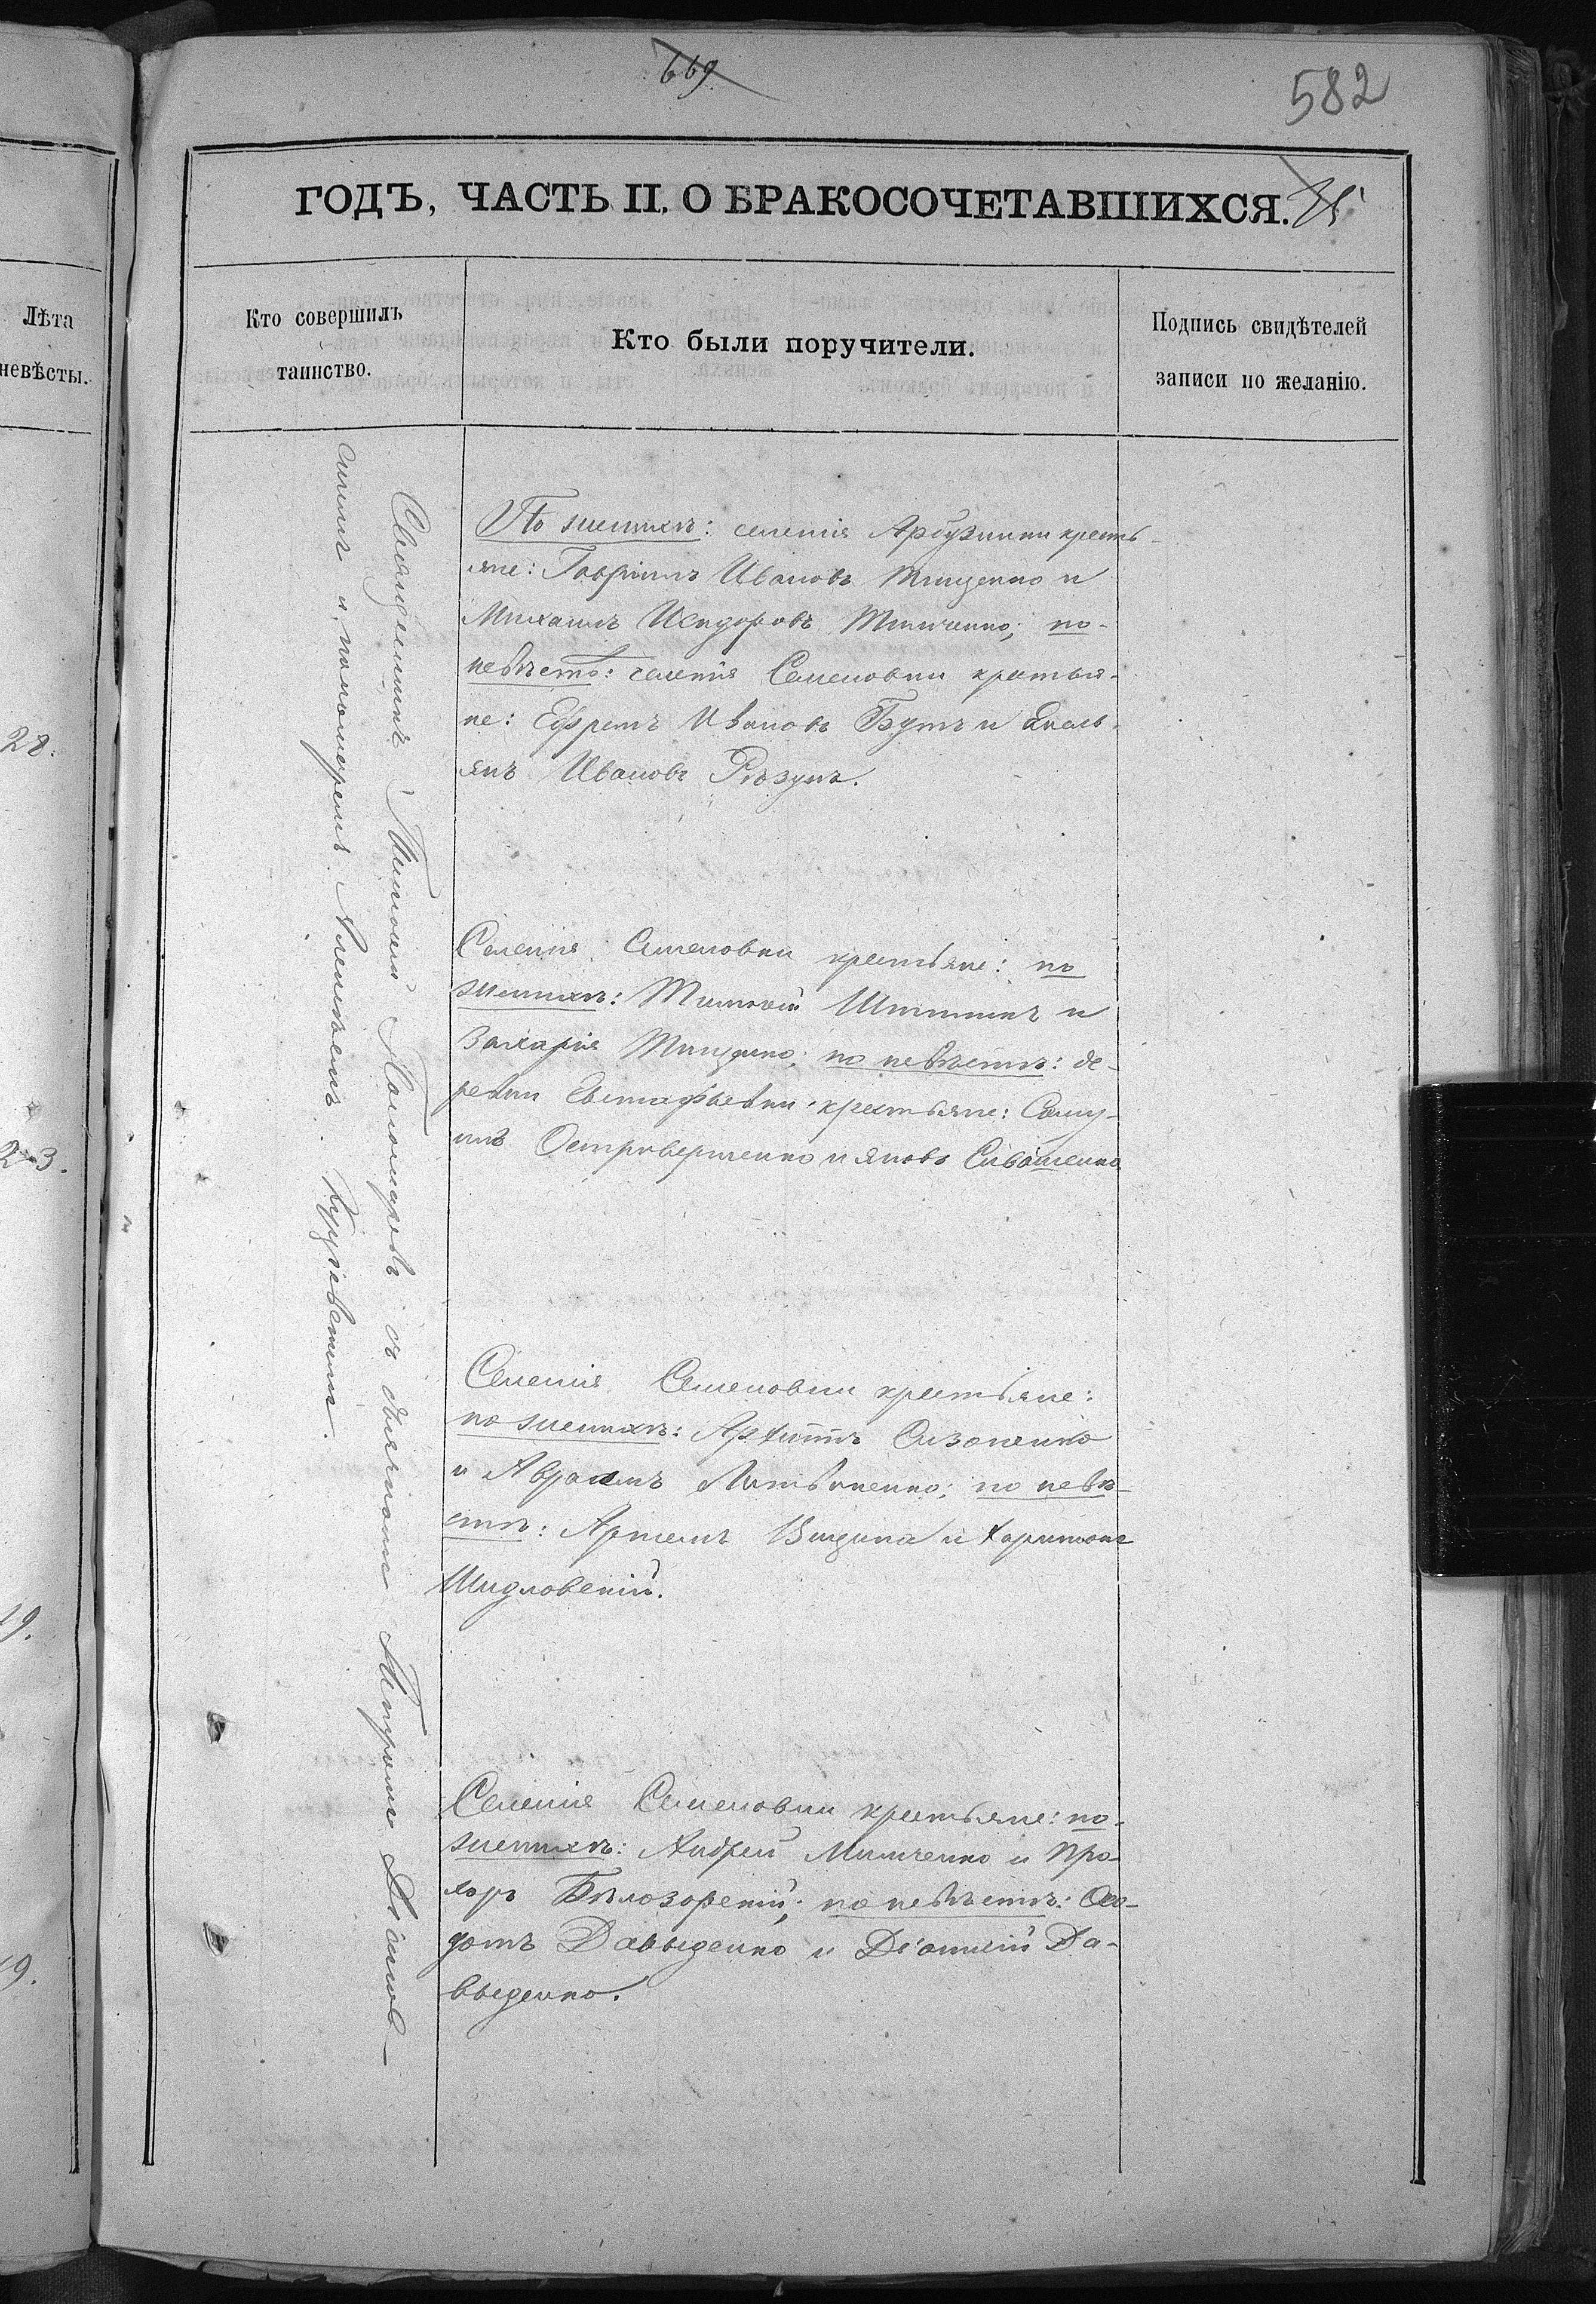 669
582
ГОДЪ, ЧАСТЬ II. О БРАКОСОЧЕТАВШИХСЯ.
Лѣта
невѣсты.
Кто совершилъ
таинство.
Кто были поручители.
Подпись свидѣтелей
записи по желанію.
28.
23.
19.
19.
Священникъ Тимоѳей Пономаревъ съ діакономъ Петромъ Діони-
сіемъ и пономаремъ Алексѣемъ
По женихѣ: селенія Арбузинки кресть-
яне: Гавріилъ Ивановъ Тищенко и
Михаилъ Исидоровъ Тимченко; по
невѣстѣ: селенія Семеновки крестья-
не: Ефремъ Ивановъ Бутъ и Емель-
янъ Ивановъ Рѣзунъ.
Селенія Семеновки крестьяне: по
женихѣ: Тимоѳей и
Захарія Тищенко; по невѣстѣ: де-
ревни Евстафьевки крестьяне: Саму-
илъ Островершенко и Яковъ Сивашенко
Селенія Семеновки крестьяне:
по женихѣ: Архиппъ Сизоненко
и Авраамъ Литвиненко; по невѣ-
стѣ: Артемъ и Харитонъ
Шидловскій.
Селенія Семеновки крестьяне: по
женихѣ: Андрей и Про-
хоръ Бѣлозорскій; по невѣстѣ: Ѳео-
дотъ Давыденко и Діонисій Да-
выденко.